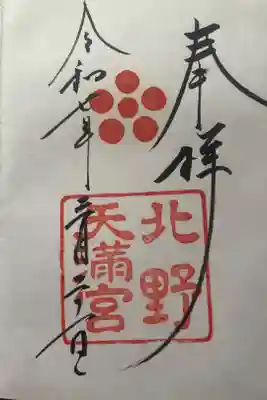 奉拝
北野
天満宮
令和七年三月二十一日